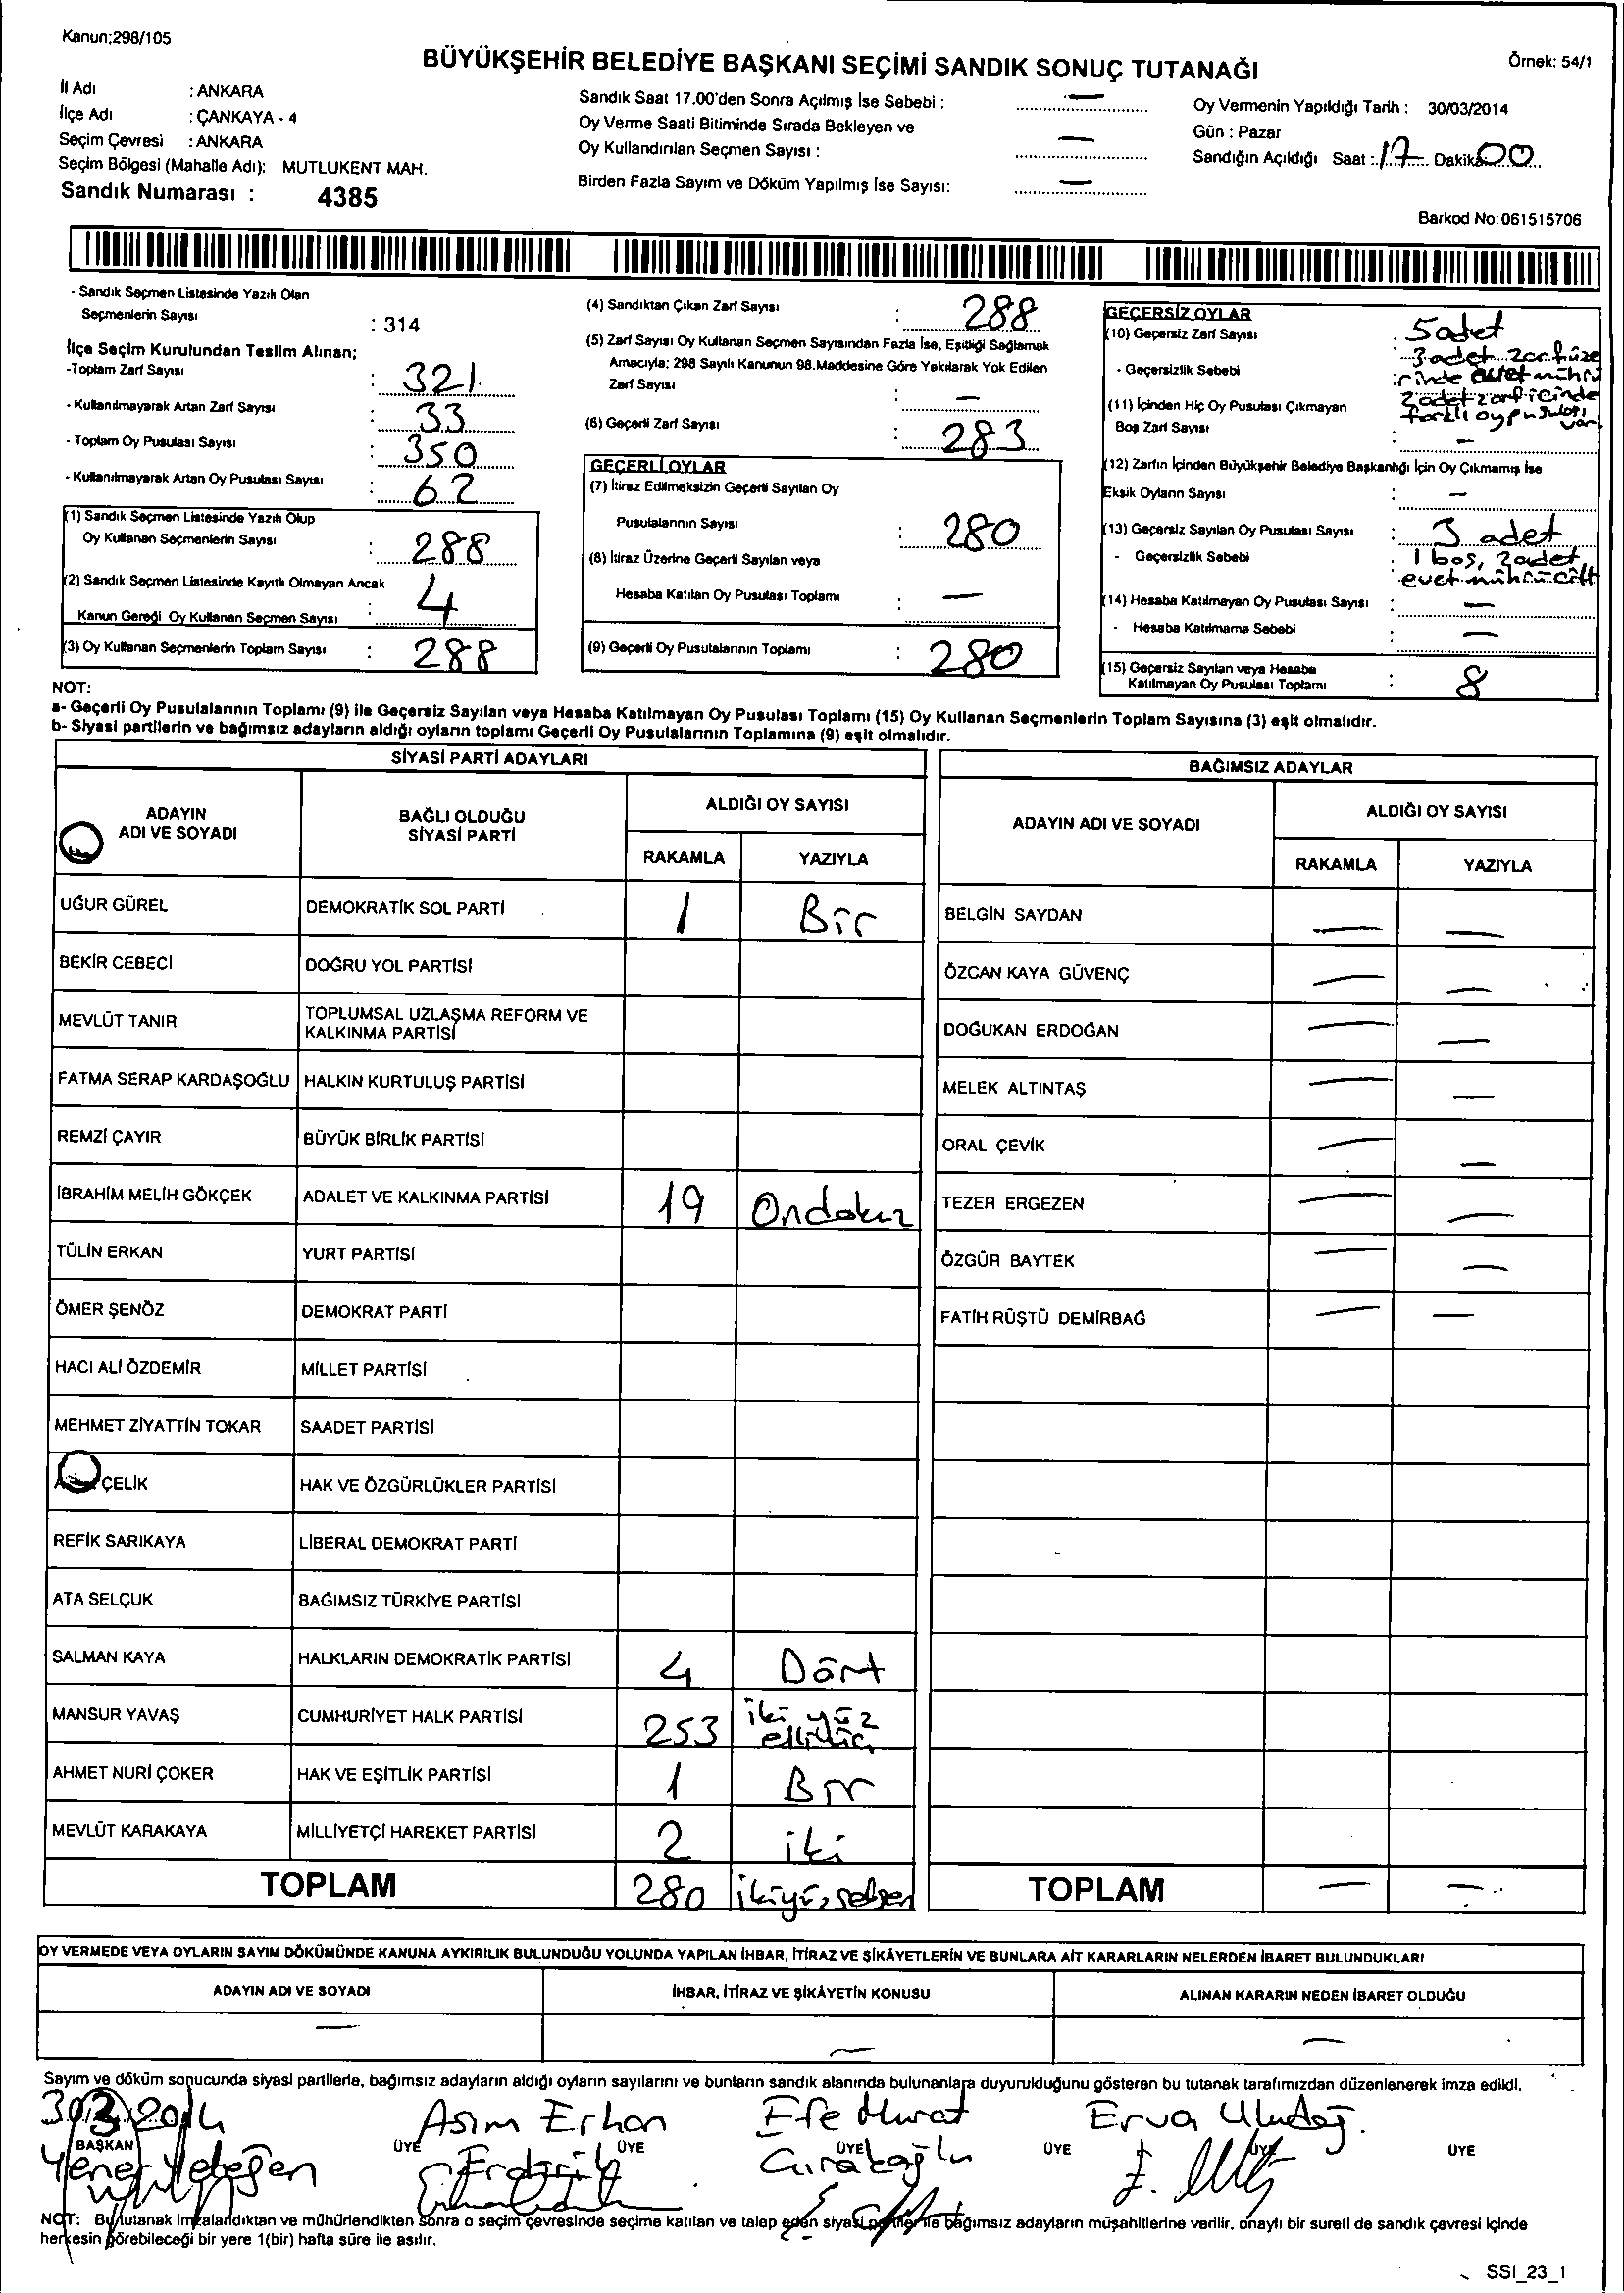 Kanun;298/105
BÜYÜKŞEHİR BELEDİYE BAŞKANI SEÇİMİ SANDIK SONUÇ TUTANAĞI
Örnek: 54/1
İl Adı : ANKARA
İlçe Adı : ÇANKAYA - 4
Seçim Çevresi : ANKARA
Seçim Bölgesi (Mahalle Adı): MUTLUKENT MAH.
Sandık Numarası : 4385
Sandık Saat 17.00'den Sonra Açılmış İse Sebebi : —
Oy Verme Saati Bitiminde Sırada Bekleyen ve
Oy Kullandırılan Seçmen Sayısı : —
Birden Fazla Sayım ve Döküm Yapılmış İse Sayısı: —
Oy Vermenin Yapıldığı Tarih : 30/03/2014
Gün : Pazar
Sandığın Açıldığı Saat : 17 Dakika 00
Barkod No:061515706
- Sandık Seçmen Listesinde Yazılı Olan
Seçmenlerin Sayısı : 314
İlçe Seçim Kurulundan Teslim Alınan;
-Toplam Zarf Sayısı : 321
- Kullanılmayarak Artan Zarf Sayısı : 33
- Toplam Oy Pusulası Sayısı : 350
- Kullanılmayarak Artan Oy Pusulası Sayısı : 62
(1) Sandık Seçmen Listesinde Yazılı Olup
Oy Kullanan Seçmenlerin Sayısı : 288
(2) Sandık Seçmen Listesinde Kayıtlı Olmayan Ancak
Kanun Gereği Oy Kullanan Seçmen Sayısı : 4
(3) Oy Kullanan Seçmenlerin Toplam Sayısı : 288
(4) Sandıktan Çıkan Zarf Sayısı : 288
(5) Zarf Sayısı Oy Kullanan Seçmen Sayısından Fazla İse, Eşitliği Sağlamak
Amacıyla; 298 Sayılı Kanunun 98.Maddesine Göre Yakılarak Yok Edilen
Zarf Sayısı : —
(6) Geçerli Zarf Sayısı : 283
GEÇERLİ OYLAR
(7) İtiraz Edilmeksizin Geçerli Sayılan Oy
Pusulalarının Sayısı : 280
(8) İtiraz Üzerine Geçerli Sayılan veya
Hesaba Katılan Oy Pusulası Toplamı : —
(9) Geçerli Oy Pusulalarının Toplamı : 280
GEÇERSİZ OYLAR
(10) Geçersiz Zarf Sayısı : 5 adet
- Geçersizlik Sebebi : 3 adet zarf üze
rinde evet mührü
2 adet zarf icinde
farklı oy pusulası var
(11) İçinden Hiç Oy Pusulası Çıkmayan
Boş Zarf Sayısı : —
(12) Zarfın İçinden Büyükşehir Belediye Başkanlığı İçin Oy Çıkmamış İse
Eksik Oyların Sayısı : —
(13) Geçersiz Sayılan Oy Pusulası Sayısı : 3 adet
- Geçersizlik Sebebi : 1 boş, 2 adet
evet mührü çift
(14) Hesaba Katılmayan Oy Pusulası Sayısı : —
- Hesaba Katılmama Sebebi : —
(15) Geçersiz Sayılan veya Hesaba
Katılmayan Oy Pusulası Toplamı : 8
NOT:
a- Geçerli Oy Pusulalarının Toplamı (9) ile Geçersiz Sayılan veya Hesaba Katılmayan Oy Pusulası Toplamı (15) Oy Kullanan Seçmenlerin Toplam Sayısına (3) eşit olmalıdır.
b- Siyasi partilerin ve bağımsız adayların aldığı oyların toplamı Geçerli Oy Pusulalarının Toplamına (9) eşit olmalıdır.
SİYASİ PARTİ ADAYLARI
ADAYIN ADI VE SOYADI BAĞLI OLDUĞU SİYASİ PARTİ ALDIĞI OY SAYISI
RAKAMLA YAZIYLA
UĞUR GÜREL DEMOKRATİK SOL PARTİ 1 Bir
BEKİR CEBECİ DOĞRU YOL PARTİSİ
MEVLÜT TANIR TOPLUMSAL UZLAŞMA REFORM VE KALKINMA PARTİSİ
FATMA SERAP KARDAŞOĞLU HALKIN KURTULUŞ PARTİSİ
REMZİ ÇAYIR BÜYÜK BİRLİK PARTİSİ
İBRAHİM MELİH GÖKÇEK ADALET VE KALKINMA PARTİSİ 19 Ondokuz
TÜLİN ERKAN YURT PARTİSİ
ÖMER ŞENÖZ DEMOKRAT PARTİ
HACI ALİ ÖZDEMİR MİLLET PARTİSİ
MEHMET ZİYATTİN TOKAR SAADET PARTİSİ
ÇELİK HAK VE ÖZGÜRLÜKLER PARTİSİ
REFİK SARIKAYA LİBERAL DEMOKRAT PARTİ
ATA SELÇUK BAĞIMSIZ TÜRKİYE PARTİSİ
SALMAN KAYA HALKLARIN DEMOKRATİK PARTİSİ 4 Dört
MANSUR YAVAŞ CUMHURİYET HALK PARTİSİ 253 iki yüz elliüç
AHMET NURİ ÇOKER HAK VE EŞİTLİK PARTİSİ 1 Bir
MEVLÜT KARAKAYA MİLLİYETÇİ HAREKET PARTİSİ 2 iki
TOPLAM 280 ikiyüzseksen
BAĞIMSIZ ADAYLAR
ADAYIN ADI VE SOYADI ALDIĞI OY SAYISI
RAKAMLA YAZIYLA
BELGİN SAYDAN — —
ÖZCAN KAYA GÜVENÇ — —
DOĞUKAN ERDOĞAN — —
MELEK ALTINTAŞ — —
ORAL ÇEVİK — —
TEZER ERGEZEN — —
ÖZGÜR BAYTEK — —
FATİH RÜŞTÜ DEMİRBAĞ — —
TOPLAM — —
OY VERMEDE VEYA OYLARIN SAYIM DÖKÜMÜNDE KANUNA AYKIRILIK BULUNDUĞU YOLUNDA YAPILAN İHBAR, İTİRAZ VE ŞİKÂYETLERİN VE BUNLARA AİT KARARLARIN NELERDEN İBARET BULUNDUKLARI
ADAYIN ADI VE SOYADI İHBAR, İTİRAZ VE ŞİKÂYETİN KONUSU ALINAN KARARIN NEDEN İBARET OLDUĞU
— — —
Sayım ve döküm sonucunda siyasi partilerle, bağımsız adayların aldığı oyların sayılarını ve bunların sandık alanında bulunanlara duyurulduğunu gösteren bu tutanak tarafımızdan düzenlenerek imza edildi.
30.3.2014 Asım Erhan Efe Murat Erva Uludağ
BAŞKAN ÜYE ÜYE ÜYE ÜYE ÜYE ÜYE
Yener
NOT: Bu tutanak imzalandıktan ve mühürlendikten sonra o seçim çevresinde seçime katılan ve talep eden siyasi partiler ile bağımsız adayların müşahitlerine verilir, onaylı bir sureti de sandık çevresi içinde
herkesin görebileceği bir yere 1(bir) hafta süre ile asılır.
SSI_23_1